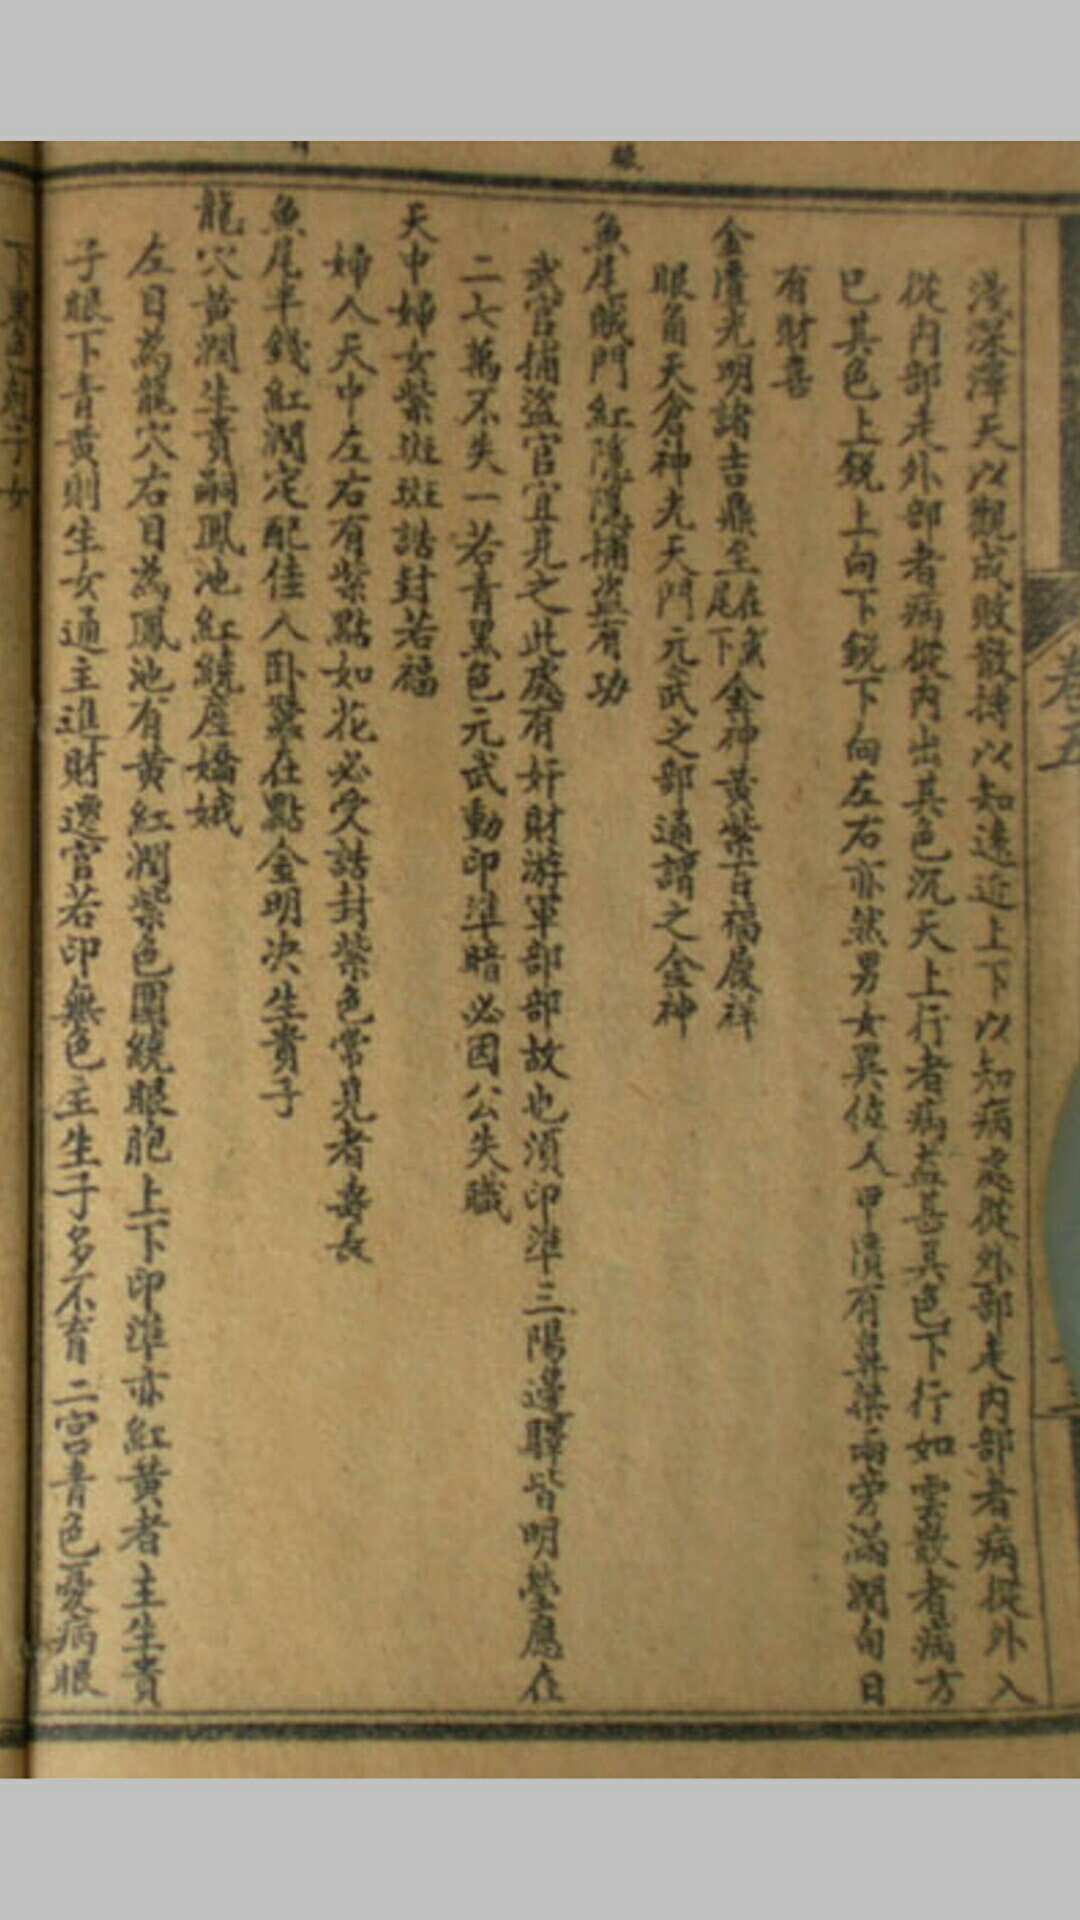 卷五
浅深澤天以觀成敗散摶以知遠近上下以知病處從外部走内部者病從外入
從内部走外部者病從内出其色沉夭上行者病益甚其色下行如雲散者病方
已其色上鋭上向下鋭下向左右亦然男女異位人甲湏有鼻梁兩旁滿潤旬日
有財喜
金匱光明諸吉鼎至在魚尾下金神黄紫百福履祥
眼角天倉神光天門元武之部通謂之金神
魚尾賊門紅隱隱捕盗有功
武官捕盗官宜見之此處有奸財游軍部部故也湏印準三陽邊驛皆明瑩應在
二七萬不失一若青黑色元武動印準暗必因公失職
天中婦女紫斑斑誥封若福
婦人天中左右有紫點如花必受誥封紫色常見者壽長
魚尾半錢紅潤定配佳人卧蠶在點金明决生貴子
龍穴黄潤生貴嗣鳳池紅繞産嬌娥
左目為龍穴右目為鳳池有黄紅潤紫色圍繞眼胞上下印準亦紅黄者主生貴
子眼下青黄則生女通主進財遷官若印無色主生子多不育二宫青色憂病眼
子女